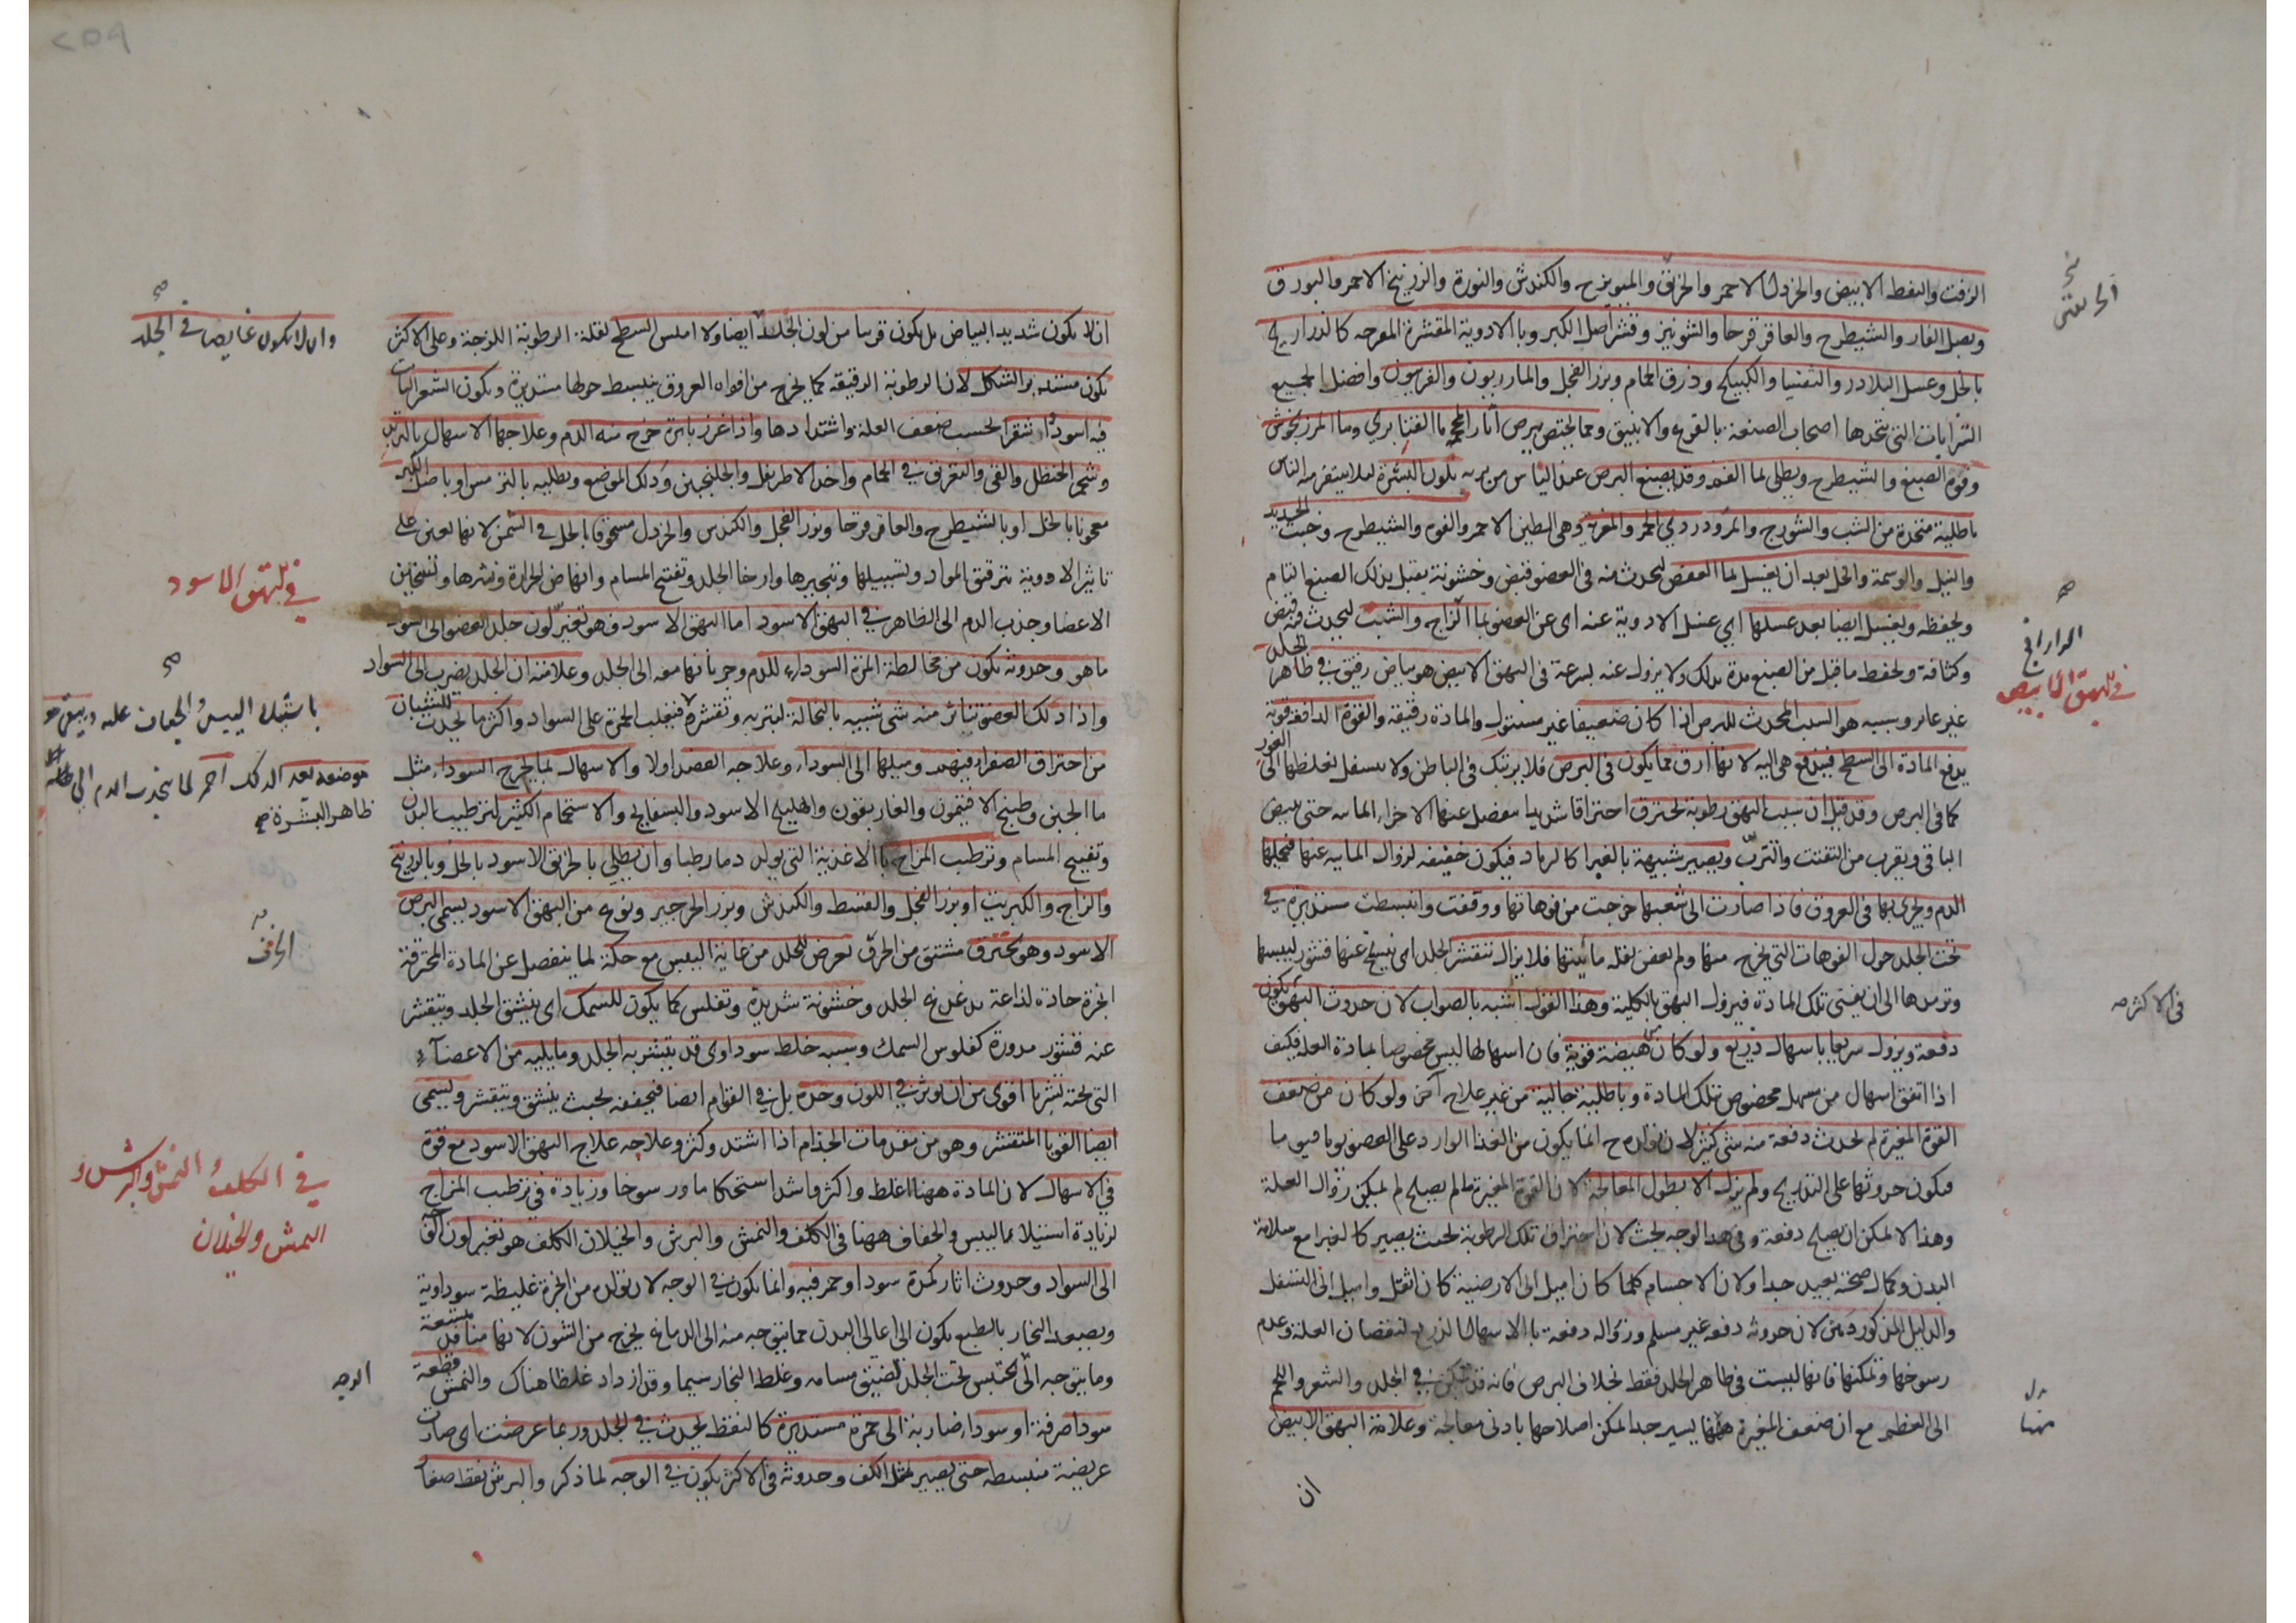 الزفت والنفط الابيض والخردل الاحمر والخربق والميويزج والكندش والنورة والزرنيخ الاحمر والبورق
وبصل الفار والشيطرج والعاقرقرحا والشونيز وقشر اصل الكبر وبالادوية المقشرة المقرحه كالذراريح
بالخل وعسل البلادر والتفسيا والكبيكج وذرق الحمام وبزر الفجل والمازريون والفربيون وافضل الجميع
التى يتخذها اصحاب الصنعة بالقرع والانبيق ومما يختص ببرص آثار المحجمة ماء وماء المرزنجوش
وفوة الصبغ والشيطرج ويطلى بماء وقد يصبغ البرص عند الناس من يريه بلون البشرة لئلا يتنفر منه الناس
باطلية متخذة من الشب والشورج والمر ودردي الخمر والمغرة وهى الطين الاحمر والفوه والشيطرج وخبث الحديد
والنيل والوسمة والخل بعد ان يغسل بماء العفص ليحدث منه فى العضو قبض وخشونة يقبل بذلك الصبغ التام
ويحفظه ويغسل ايضا بعد غسلها اي غسل الادوية عنه اى عن العضو بماء الزاج والشب ليحدث فيه قبض
وكثافة ويحفظ ما قبل من الصبغ مدة بذلك ولا يزول عنه بسرعة فى البهق الابيض هو بياض رقيق فى ظاهر الجلد
غير غاير وسببه هو السبب المحدث للبرص اذا كان ضعيفا غير مستول والمادة رقيقة والقوة الدافعة قوية
يدفع المادة الى السطح فيندفع هى اليه لانها ارق مما يكون فى البرص فلا يرتبك فى الباطن ولا يسفل لغلظها الى الغور
كما فى البرص وقد قيل ان سبب البهق رطوبة تحترق احتراقا شديدا ينفصل عنها الاجزاء المائيه حتى يبيض
الباقى ويقرب من التفتت والتترب ويصير شبيهة بالغبرا كالرماد فيكون خفيفه لزوال المائيه عنها فيحملها
الدم ويجرى بها فى العروق فاذا صارت الى شعبها خرجت من فوهاتها ووقفت وانبسطت مستديرة فى
تحت الجلد حول الفوهات التى يخرج منها ولم يعفن لقله مائيتها فلا يزال تتقشر الجلد اى ينسلخ عنها قشور ليبسها
الى ان يفنى تلك المادة فيزول البهق بالكلية وهذا القول اشبه بالصواب لان حدوث البهق يكون
دفعة ويزول سريعا باسهال ذريع ولو كان هيضة قوية فان اسهالها ليس مخصوصا بمادة العلة فكيف
اذا اتفق اسهال من مسهل مخصوص بتلك المادة وباطلية جالية من غير علاج آخر ولو كان من ضعف
القوة المغيرة لم يحدث دفعة منه شى كثير لان تولده ح انما يكون من الغذا الوارد على العضو يوما فيوما
فيكون حدوثها على التدريج ولم يزل الا بطول المعالجة لان القوة المغيرة ما لم يصلح لم يمكن زوال العلة
وهذا لا يمكن ان يصلح دفعة وفى هذا الوجه بحث لان احتراق تلك الرطوبة بحيث يصير كالغبرا مع سلامة
البدن وكمال صحته بعيد جدا ولان الاجسام كلما كان اميل الى الارضية كان اثقل واميل الى التسفل
والدليل المذكور لان حدوثه دفعة غير مسلم وزواله دفعة بالاسهال الذريع لنقصان العلة وعدم
رسوخها وتمكنها فانها ليست فى ظاهر الجلد فقط بخلاف البرص فانه قد تمكن فى الجلد والشعر واللحم
الى العظم مع ان ضعف المغيرة ههنا يسير جدا امكن اصلاحها بادنى معالجة وعلامة البهق الابيض
ان
فى البهق الابيض
فى الاكثر صح
ان لا يكون شديد البياض بل يكون قريبا من لون الجلد ايضا ولا املس السطح لقلة الرطوبة اللزجة وعلى الاكثر
يكون مستدير الشكل لان الرطوبة الرقيقه كما يخرج من افواه العروق ينبسط حولها مستديرة ويكون الشعر النابت
فيه اسود او اشقر بحسب ضعف العلة واشتدادها واذا غرز بابرة خرج منه الدم وعلاجها الاسهال بالتربد
وشحم الحنظل والقى والتعرق فى الحمام واخذ الاطريفل والجلنجبين ودلك الموضع ويطليه بالترمس او باصل الكبر
معجونا بالخل او بالشيطرج والعاقرقرحا وبزر الفجل والكندس والخردل مسحوقا بالخل فى الشمس لانها تعين على
تاثير الادوية بترقيق المواد وتسييلها وتبخيرها وارخا الجلد وتفتيح المسام وتسخين
الاعضا وجذب الدم الى الظاهر فى البهق الاسود اما البهق الاسود فهو تغير لون جلد العضو الى السواد
ما هو وحدوثه يكون من مخالطة المرة السوداء للدم وجريانها معه الى الجلد وعلامته ان الجلد يضرب الى السواد
واذا دلك العضو تناثر منه شى شبيه بالنخالة لتتربه وتقشره فيغلب الحمرة على السواد واكثر ما يحدث للشبان
من احتراق الصفراء فيهم وميلها الى السوداء وعلاجه الفصد اولا والاسهال بما يخرج السوداء مثل
ماء الجبن وطبيخ الافتيمون والغاريقون والهليلج الاسود والبسفايج والاستحمام الكثير لترطيب البدن
وتفتيح المسام وترطيب المزاج بالاغذية التى يولد دما رطبا وان يطلى بالخربق الاسود بالخل وبالزرنيخ
والزاج والكبريت او بزر الفجل والقسط والكندش وبزر الجرجير ونوع من البهق الاسود يسمى البرص
الاسود وهو تحزق مشتق من الحرق يعرض للجلد من غاية اليبس مع حكة لما ينفصل عن المادة المحترقة
ابخرة حادة لذاعة يدغدغ الجلد وخشونة شديدة وتفلس كما يكون للسمك اى ينشق الجلد ويتقشر
عنه قشور مدورة كفلوس السمك وسببه خلط سوداوى قد يتشربه الجلد وما يليه من الاعضاء
التى تحته تشربا اقوى من ان يوثر فى اللون وحده بل فى القوام ايضا فيجففه بحيث ينشق ويتقشر ويسمى
ايضا القوبا المتقشر وهو من مقدمات الجذام اذا اشتد وكثر وعلاجه علاج البهق الاسود مع قوة
فى الاسهال لان المادة ههنا اغلظ واكثر واشد استحكاما ورسوخا وزيادة فى ترطيب المزاج
لزيادة استيلاء اليبس والجفاف ههنا فى الكلف والنمش والبرش والخيلان الكلف هو تغير لون
الى السواد وحدوث اثار كمدة سودا وحمر فيه وانما يكون فى الوجه لان تولده من ابخرة غليظة سوداوية
ويصعد البخار بالطبع يكون الى اعالى البدن مما يتوجه منه الى الدماغ يخرج من الشون لانها منافذ متسعة
وما يتوجه الى يحتبس تحت الجلد لضيق مسامه وغلظ البخار سيما وقد ازداد غلظا هناك والنمش قطعة
سودا صرفة او سوداء ضاربة الى حمرة مستديرة كالنقط يحدث فى الجلد وربما عرضت اى صارت
عريضة منبسطه حتى يصير مثل الكف وحدوثه فى الاكثر يكون فى الوجه لما ذكر والبرش نقط صغار
وان لا يكون غايصا فى الجلد
فى البهق الاسود
باستيلاء اليبس
موضعه بعد الدلك احمر لما ينجذب الدم الى
ظاهر البشرة صح
فى الكلف والنمش والبرش و
النمش والخيلان
الوجه